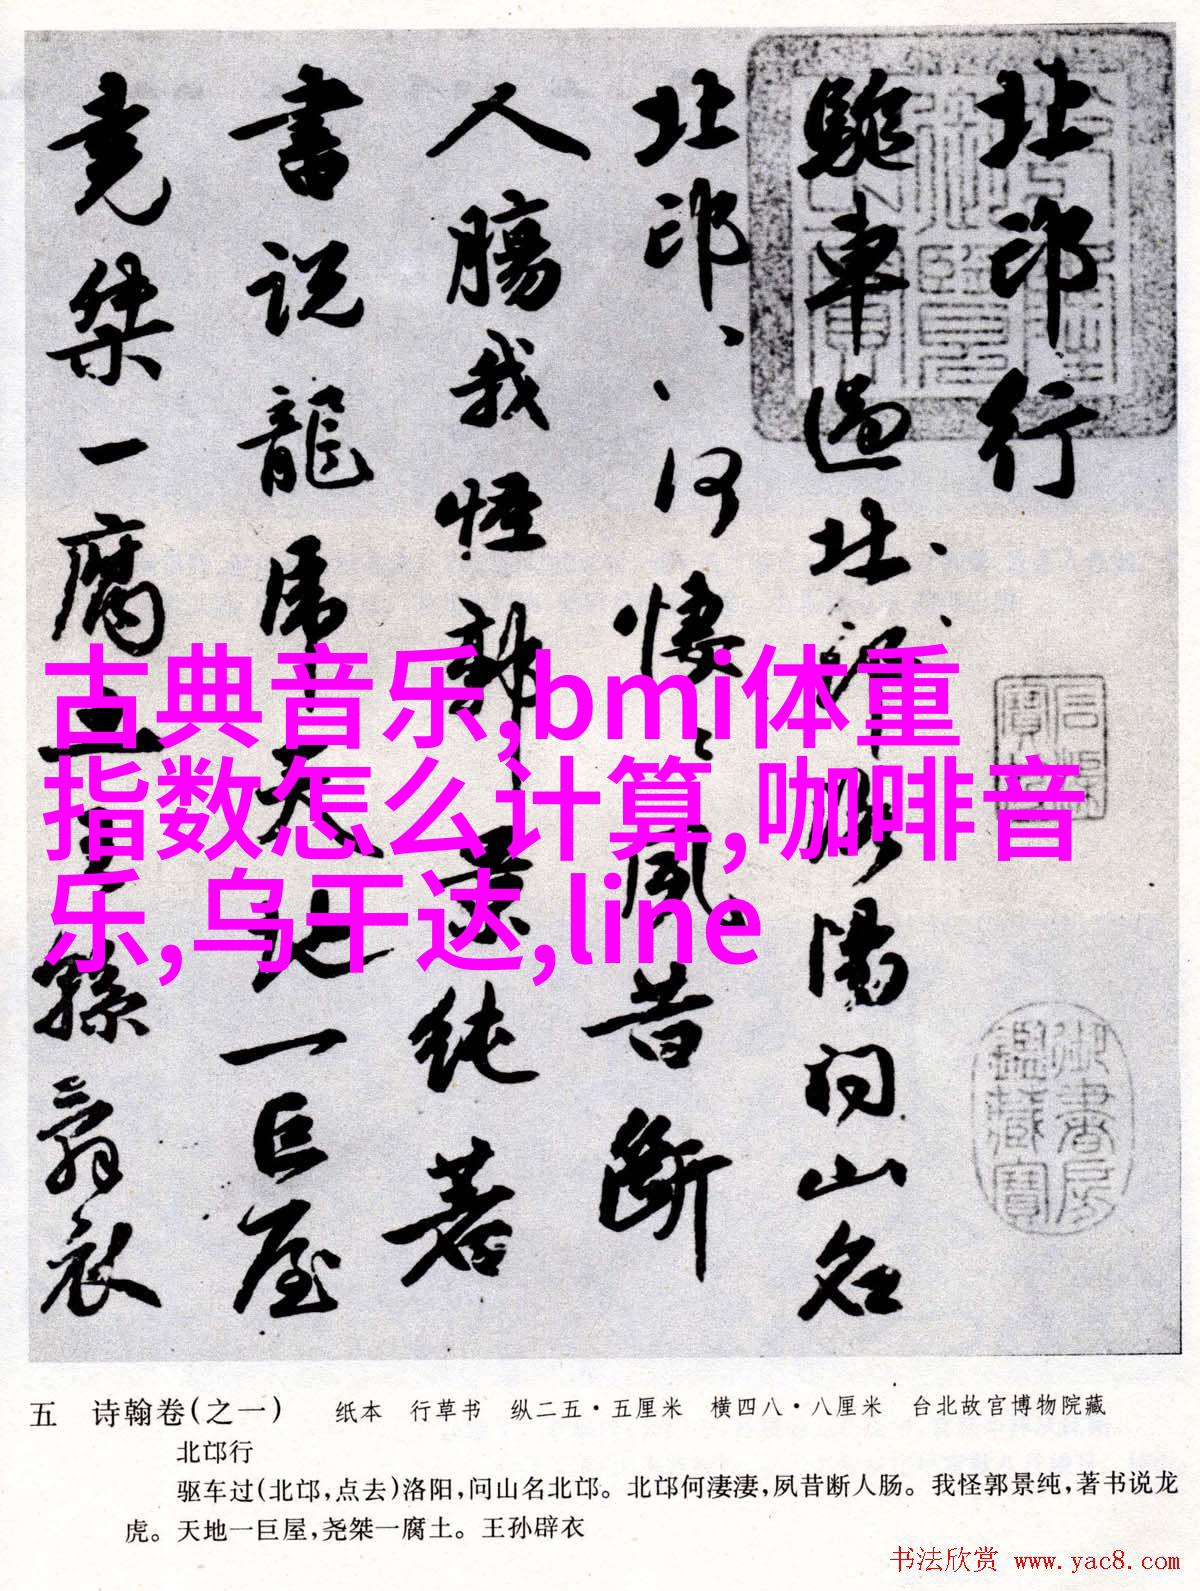 北邙行
驅車過北邙洛陽問山名
北邙、、何悽悽風昔斷
人腸我怪郭景純著
書说龍虎天地一巨屋
堯桀一腐土王孫辟衣
古典音乐,bmi体重
指数怎么计算,咖啡音
乐,乌干达,line
御書房鑑藏寶
五 诗翰卷(之一) 纸本 行草书 纵二五·五厘米 横四八·八厘米 台北故宫博物院藏
北邙行
驱车过(北邙,点去)洛阳,问山名北邙。北邙何凄凄,夙昔断人肠。我怪郭景纯,著书说龙
虎。天地一巨屋,尧桀一腐土。王孙辟衣
书法欣赏 www.yac8.com